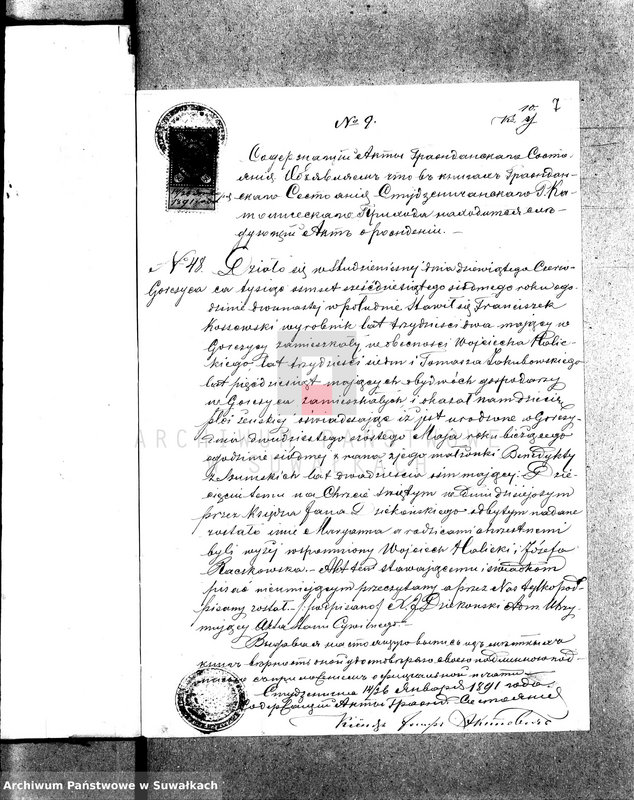 № 9.
7
Содержащій Акты Гражданскаго Состо-
янія Объявляетъ что въ книгахъ Граждан-
скаго Состоянія Студзеничанскаго Р. Ка-
толическаго Прихода находится слѣ-
дующій Актъ о рожденіи. —
№ 48.
Gorczyca
Działo się w Studzienicznej dnia dziewiątego Czerw-
ca tysiąc ośmset sześćdziesiątego siódmego roku o go-
dzinie dwunastej w południe Stawił się Franciszek
Kossewski wyrobnik lat trzydzieści dwa mający w
Gorczycy zamieszkały w obecności Wojciecha Halic-
kiego lat trzydzieści siedm i Tomasza Zakubowskiego
lat pięćdziesiąt mających obydwóch gospodarzy
w Gorczycu zamieszkałych i okazał nam dziecię
płci żeńskiej świadcząc iż jest urodzone w Gorczy-
cy dwudziestego szóstego Maja roku bieżącego
o godzinie siódmej z rana z jego małżonki Benedykty
z Szumskich lat dwadzieścia siedm mającej. Dzie-
cięciu temu na Chrzcie świętym w dniu dzisiejszym
przez Księdza Jana Dziekońskiego odbytym nadane
zostało imie Maryanna a rodzicami chrzestnemi
byli wyżej wspomniony Wojciech Halicki i Józefa
Raczkowska. — Akt ten stawającemu i świadkom
pisać nieumiejącym przeczytany a przez Nas tylko pod-
pisany został. — (podpisano) X. J. Dziekonski Adm. Utrzy-
mujący Akta Stanu Cywilnego
Выдавая настоящую выпись изъ метаныхъ
книгъ вѣрность оной удостовѣряю своею подписью
съ приложеніемъ оффиціальной печати
Студзенична 14/26 Января 1891 года
Содержащій Акты Гражд. Состоянія
Ксендзъ
ARCHIWUM PAŃSTWOWE
W SUWAŁKACH
Archiwum Państwowe w Suwałkach